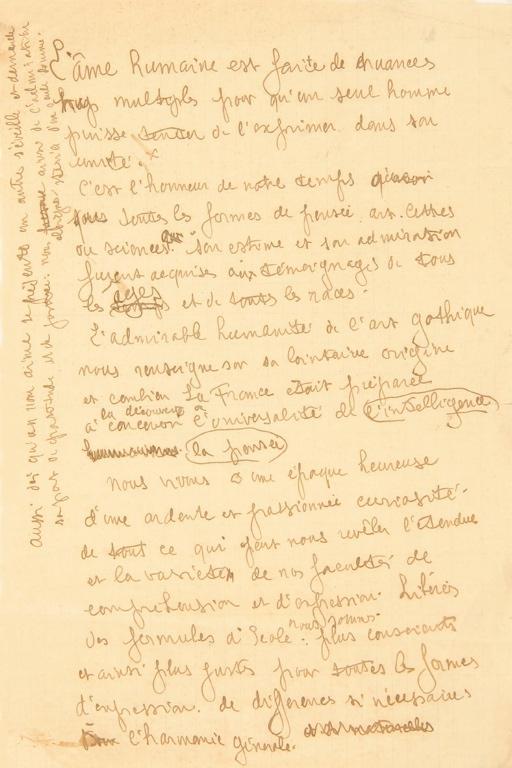 L'âme humaine est faite de nuances
trop multiples pour qu'un seul homme
puisse de l'exprimer dans son
unité. x
C'est l'honneur de notre temps
toutes les formes de pensée art. lettres
ou sciences que son estime et son admiration
fussent acquises aux témoignages de tous
les âges et de toutes les races.
L'admirable humanité de l'art gothique
nous renseigne sur sa lointaine origine
et combien la France était préparée
la découverte
à concevoir l'universalité de l'intelligence
la pensée
Nous vivons une époque heureuse
d'une ardente et passionnée curiosité.
de tout ce qui peut nous révéler l'étendue
et la variété de nos facultés de
compréhension et d'expression. Libérés
des formules d'Ecole. nous sommes plus conscients
et ainsi plus justes pour toutes les formes
d'expression. de différences si nécessaires
l'harmonie générale.
aussi dès qu'un nom aimé se présente un autre s'éveille et demande
sa part de gratitude et de : nous ainsi de l'admiration
d'une seule